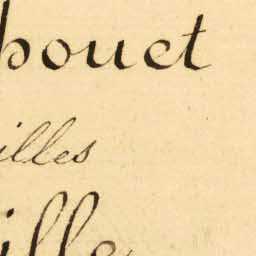 bouet
illes
ille